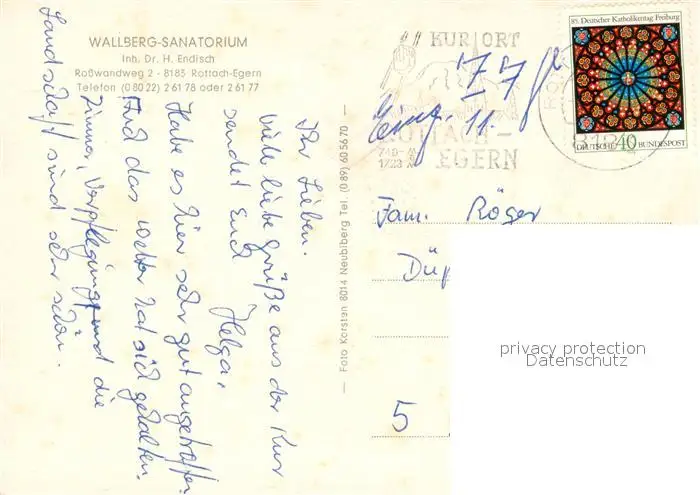 WALLBERG-SANATORIUM
Inh. Dr. H. Endisch
Roßwandweg 2 - 8183 Rottach-Egern
Telefon (0 80 22) 2 61 78 oder 2 61 77
Ihr Lieben.
Viele liebe Grüße aus der Kur
sendet Euch Helga,
Habe es hier sehr gut angetroffen
und das Wetter hat sich gehalten.
Zimmer, Verpflegung und die
Landschaft sind sehr schön.
— Foto Karsten 8014 Neubiberg Tel. (089) 60 56 70 —
KURORT
ROTTACH-
EGERN
85. Deutscher Katholikentag Freiburg
DEUTSCHE 40 BUNDESPOST
Eing. 11.
Fam. Röger
Düp
5
privacy protection
Datenschutz